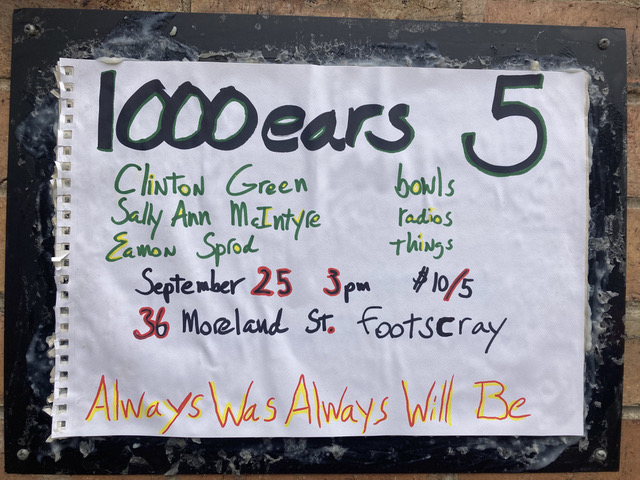 1000ears 5
Clinton Green bowls
Sally Ann McIntyre radios
Eamon Sprod things
September 25 3pm $10/5
36 Moreland St. footscray
Always Was Always Will Be